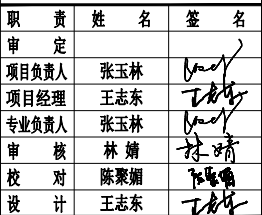 职 责 姓 名 签 名
审 定
项目负责人 张玉林
项目经理 王志东 王志东
专业负责人 张玉林
审 核 林 婧 林婧
校 对 陈聚媚 陈聚媚
设 计 王志东 王志东